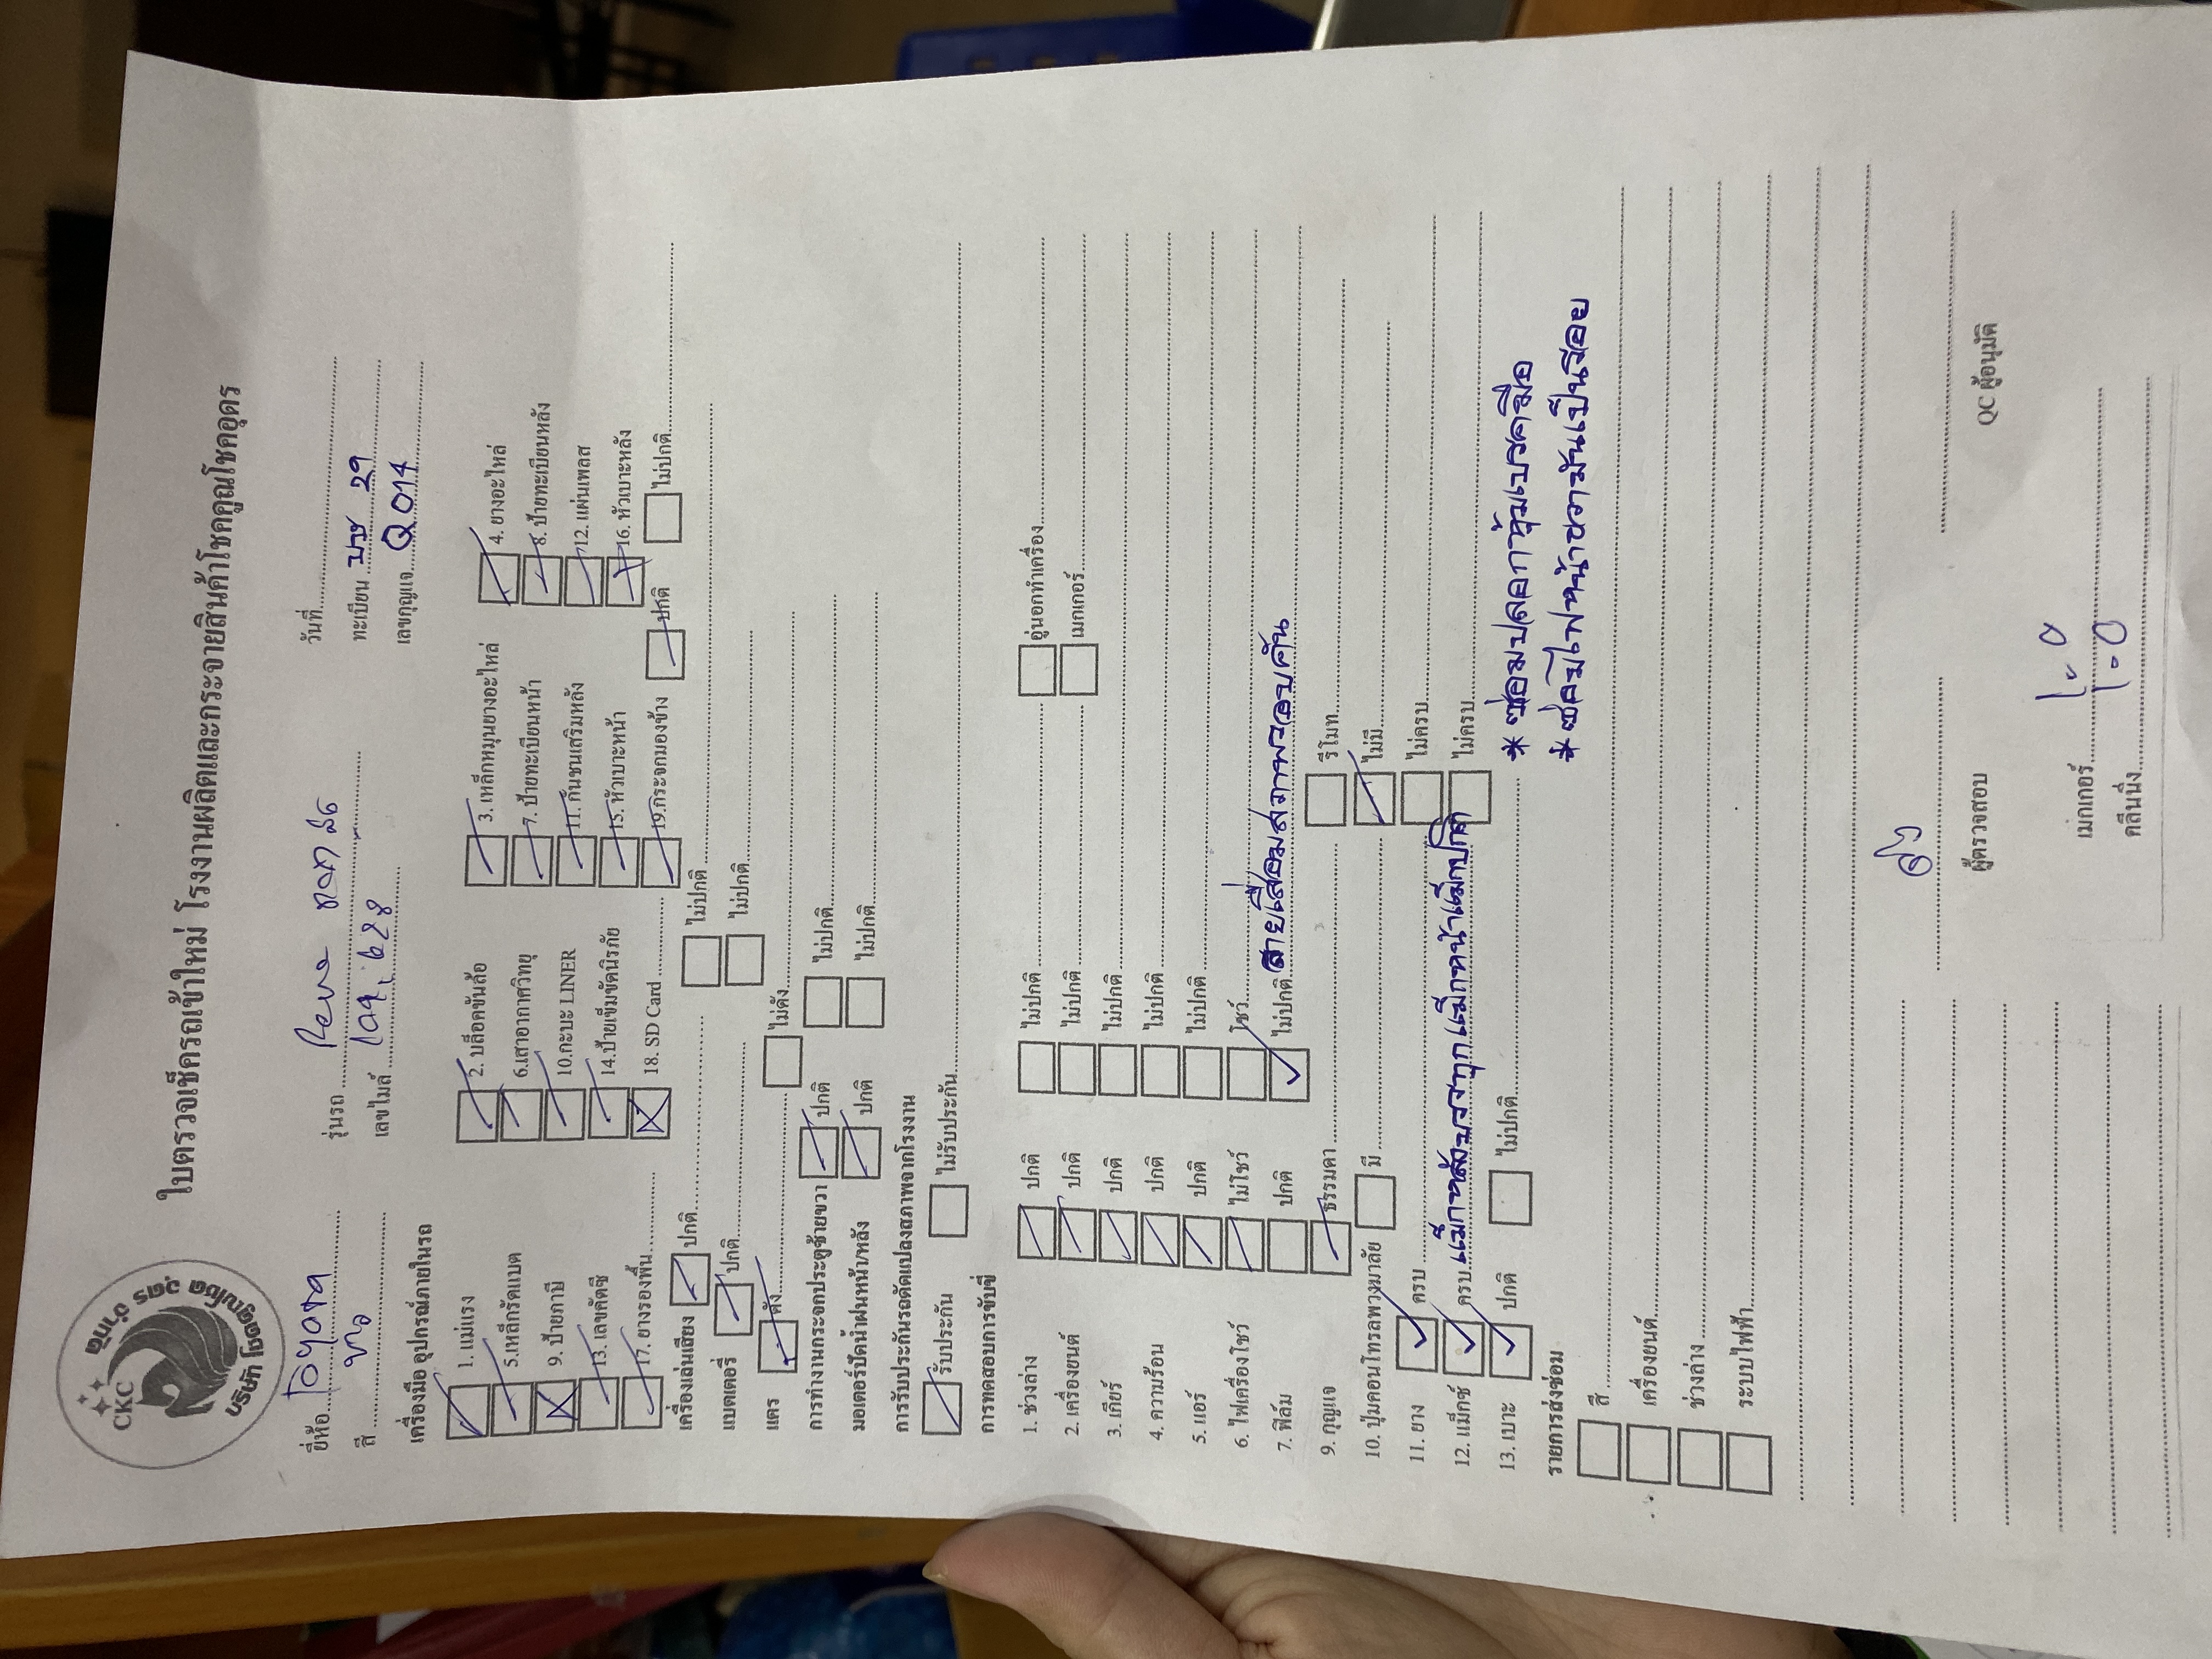 บริษัท โชคคูณโชค อุดร จำกัด
CKC
ใบตรวจเช็ครถเข้าใหม่ โรงงานผลิตและกระจายสินค้าโชคคูณโชคอุดร
ยี่ห้อ รุ่นรถ Revo วันที่
สี เลขไมล์ ทะเบียน บช 29
เลขกุญแจ Q014
เครื่องมือ อุปกรณ์ภายในรถ
1. แม่แรง 2. บล็อคขันล้อ 3. เหล็กหมุนยางอะไหล่ 4. ยางอะไหล่
5.เหล็กรัดแบต 6.เสาอากาศวิทยุ 7. ป้ายทะเบียนหน้า 8. ป้ายทะเบียนหลัง
9. ป้ายภาษี 10.กะบะ LINER 11. กันชนเสริมหลัง 12. แผ่นเพลส
13. เลขคัดซี 14.ป้ายเข็มขัดนิรภัย 15. หัวเบาะหน้า 16. หัวเบาะหลัง
17. ยางรองพื้น 18. SD Card 19.กระจกมองข้าง ปกติ ไม่ปกติ
เครื่องเล่นเสียง ปกติ ไม่ปกติ
แบตเตอรี่ ปกติ ไม่ปกติ
แตร ดัง ไม่ดัง
การทำงานกระจกประตูซ้ายขวา ปกติ ไม่ปกติ
มอเตอร์ปัดน้ำฝนหน้า/หลัง ปกติ ไม่ปกติ
การรับประกันรถดัดแปลงสภาพจากโรงงาน
รับประกัน ไม่รับประกัน
การทดสอบการขับขี่
1. ช่วงล่าง ปกติ ไม่ปกติ อู่นอกทำเครื่อง
2. เครื่องยนต์ ปกติ ไม่ปกติ เมกเกอร์
3. เกียร์ ปกติ ไม่ปกติ
4. ความร้อน ปกติ ไม่ปกติ
5. แอร์ ปกติ ไม่ปกติ
6. ไฟเครื่องโชว์ ไม่โชว์ โชว์
7. ฟิล์ม ปกติ ไม่ปกติ เสื่อมสภาพรอบคัน
9. กุญแจ ธรรมดา รีโมท
10. ปุ่มคอนโทรลพวงมาลัย มี ไม่มี
11. ยาง ครบ ไม่ครบ
12. แม็กซ์ ครบ แม็กหลังบรรทุก แม็กหน้าแม็กปกติ ไม่ครบ
13. เบาะ ปกติ ไม่ปกติ * ซ่อมปลอกหุ้มเบรคมือ
รายการส่งซ่อม
สี
เครื่องยนต์
ช่วงล่าง
ระบบไฟฟ้า
ผู้ตรวจสอบ QC ผู้อนุมัติ
เมกเกอร์
คลีนนิ่ง